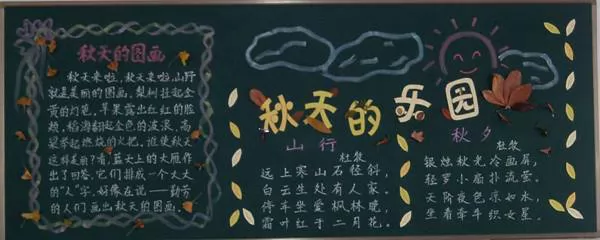 秋天的图画
秋天来啦,秋天来啦,山野
就是美丽的图画。梨树挂起金
黄的灯笼,苹果露出红红的脸
颊,稻海翻起金色的波浪,高
粱举起燃烧的火把。谁使秋天
这样美丽?看,蓝天上的大雁作
出了回答,它们排成一个大大
的“人”字,好像在说——勤劳
的人们画出秋天的图画。
秋天的乐园
山行
杜牧
远上寒山石径斜,
白云生处有人家。
停车坐爱枫林晚,
霜叶红于二月花。
秋夕
杜牧
银烛秋光冷画屏,
轻罗小扇扑流萤。
天阶夜色凉如水,
坐看牵牛织女星。